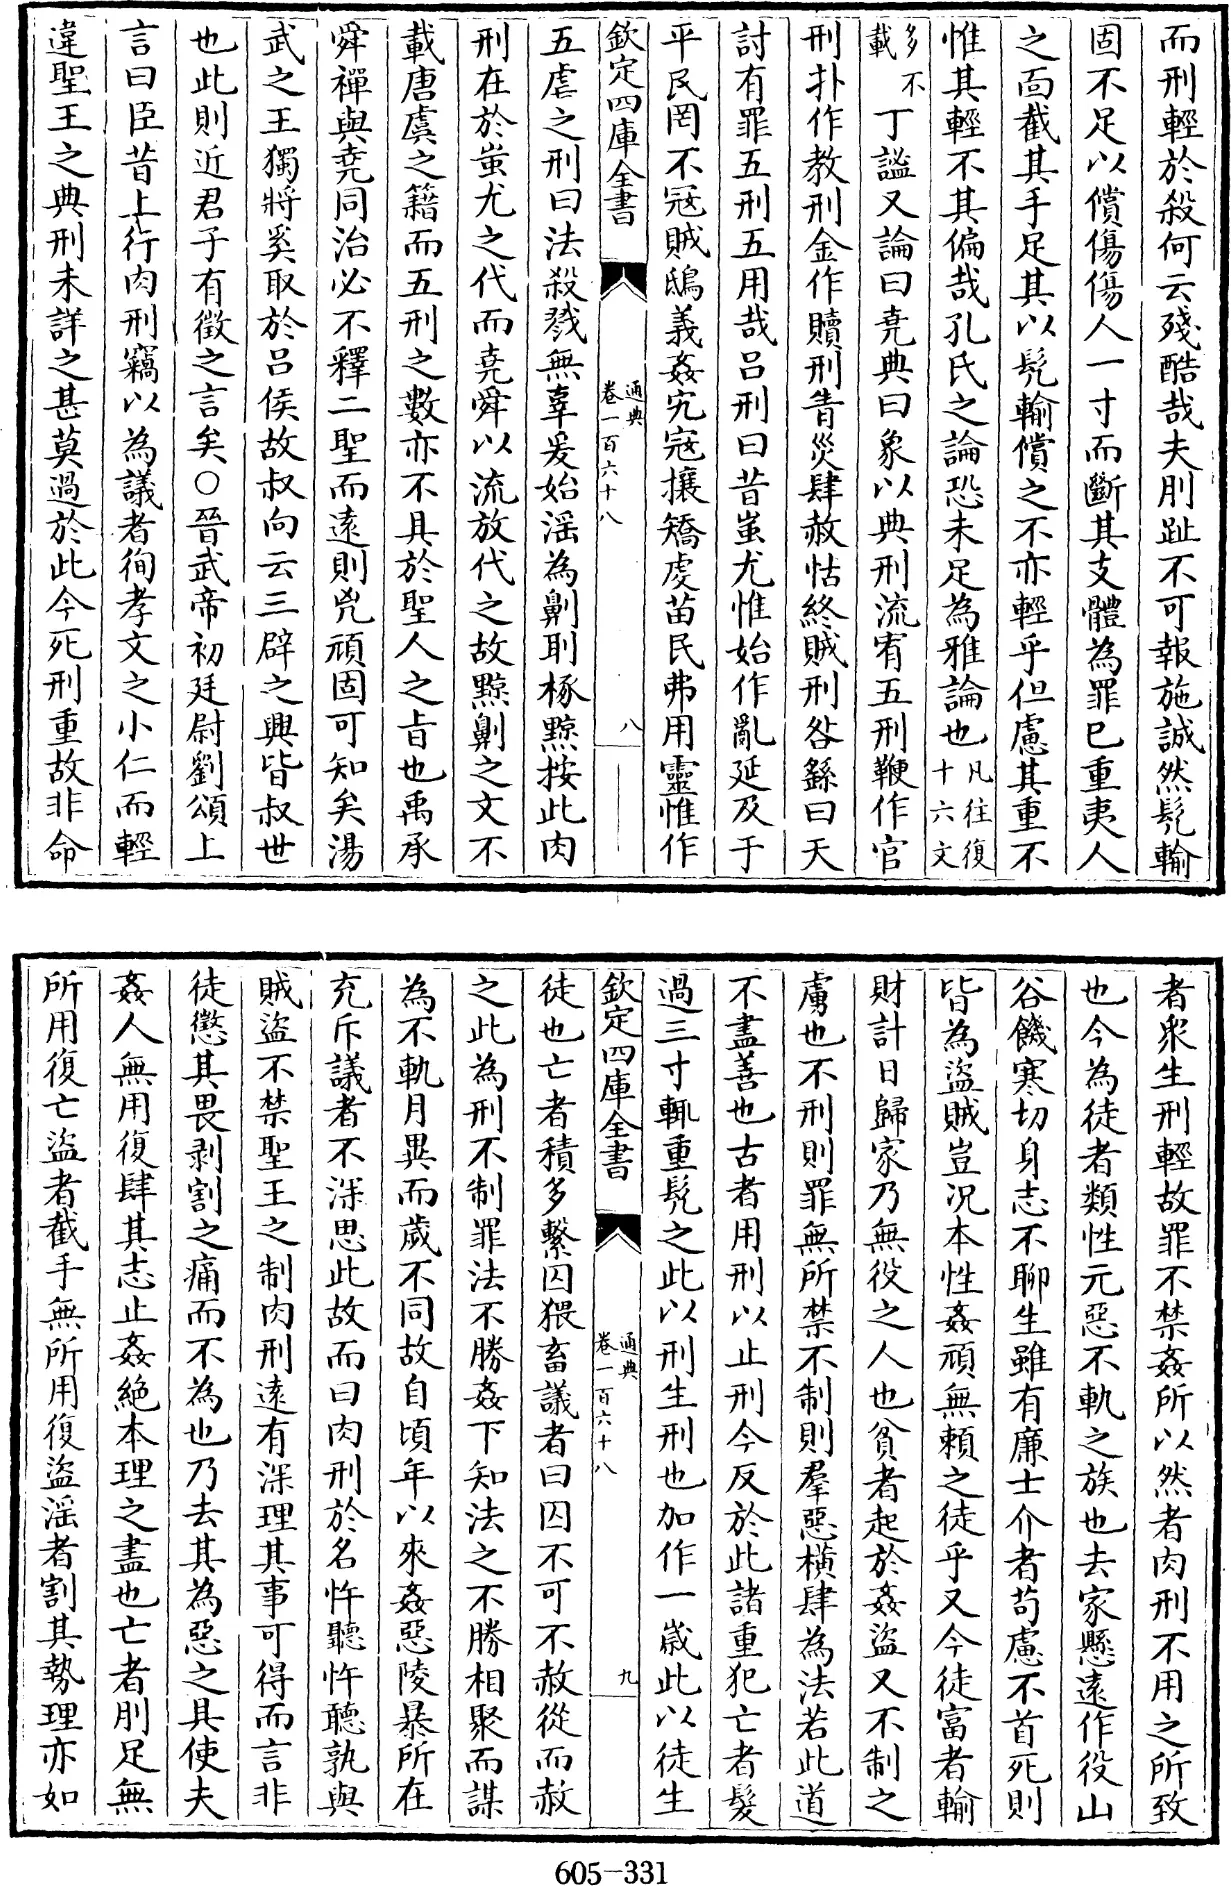 而刑輕於殺何云殘酷哉夫刖趾不可報施誠然髠輸
固不足以償傷傷人一寸而斷其支體為罪已重夷人
之面截其手足其以髠輸償之不亦輕乎但慮其重不
惟其輕不其偏哉孔氏之論恐未足為雅論也凡往復十六文
多不載丁謐又論曰堯典曰象以典刑流宥五刑鞭作官
刑扑作教刑金作贖刑眚災肆赦怙終賊刑咎繇曰天
討有罪五刑五用哉呂刑曰昔蚩尤惟始作亂延及于
平民罔不寇賊鴟義姦宄寇攘矯虔苗民弗用靈惟作
欽定四庫全書
通典
卷一百六十八
八
五虐之刑曰法殺戮無辜爰始淫為劓刵椓黥按此肉
刑在於蚩尤之代而堯舜以流放代之故黥劓之文不
載唐虞之籍而五刑之數亦不具於聖人之旨也禹承
舜禪與堯同治必不釋二聖而遠則兇頑固可知矣湯
武之王獨將奚取於呂侯故叔向云三辟之興皆叔世
也此則近君子有徵之言矣○晉武帝初廷尉劉頌上
言曰臣昔上行肉刑竊以為議者徇孝文之小仁而輕
違聖王之典刑未詳之甚莫過於此今死刑重故非命
者衆生刑輕故罪不禁姦所以然者肉刑不用之所致
也今為徒者類性元惡不軌之族也去家懸遠作役山
谷饑寒切身志不聊生雖有廉士介者苟慮不首死則
皆為盜賊豈况本性姦頑無賴之徒乎又今徒富者輸
財計日歸家乃無役之人也貧者起於姦盜又不制之
虜也不刑則罪無所禁不制則羣惡横肆為法若此道
不盡善也古者用刑以止刑今反於此諸重犯亡者髮
過三寸輒重髠之此以刑生刑也加作一嵗此以徒生
欽定四庫全書
通典
卷一百六十八
九
徒也亡者積多繫囚猥畜議者曰囚不可不赦從而赦
之此為刑不制罪法不勝姦下知法之不勝相聚而謀
為不軌月異而歲不同故自頃年以來姦惡陵暴所在
充斥議者不深思此故而曰肉刑於名忤聽忤聽孰與
賊盜不禁聖王之制肉刑遠有深理其事可得而言非
徒懲其畏剥割之痛而不為也乃去其為惡之具使夫
姦人無用復肆其志止姦絶本理之盡也亡者刖足無
所用復亡盜者截手無所用復盜淫者割其勢理亦如
605-331